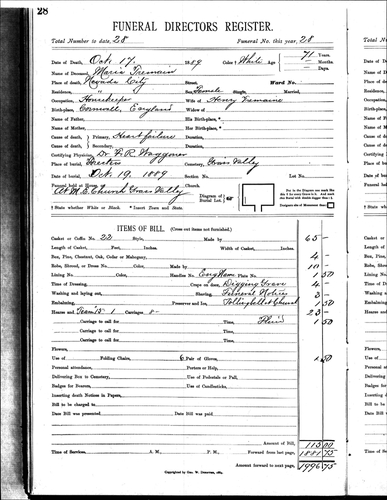 28
FUNERAL DIRECTORS REGISTER.
Total Number to date, 28 Funeral No. this year, 28
Date of Death, Oct 17. 1889 Color † White Age 71 Years, Months, Days.
Name of Deceased, Maria Tremain
Place of death, Nevada City Street; Ward No.
Residence, " " Sex, Female Single, Married,
Occupation, Housekeeper Wife of Henry Tremaine
Birthplace, Cornwall, England Widow of
Name of Father, His Birthplace, *
Name of Mother, Her Birthplace, *
Cause of death, Primary, Heart failure Duration,
Cause of death, Secondary, Duration,
Certifying Physician, Dr. W. R. Waggoner Residence,
Place of burial, Grass Valley
Date of burial, Oct. 19. 1889 Section No. Lot No.
Funeral held at Church,
At M.E. Church Grass Valley
Diagram of Lot
† State whether White or Black. * Insert Town and State.
Designate site of Monument
ITEMS OF BILL. (Cross out items not furnished.)
Casket or Coffin No. 22 Size, Made by 65 -
Length of Casket, Feet, Inches, Width of Casket, Inches.
Box, Pine, Chestnut, Oak, Cedar or Mahogany, 4 -
Robe, Shroud, or Dress No. Color, Made by 10 -
Lining No. Color, Handles No. Plate No. 1 50
Time of Dressing, Crape on door, Digging Grave 4 -
Washing and laying out, Shaving, Funeral Notice 3 -
Embalming, Preserver and Ice, Tolling bell at Church 1 50
Hearse and Teams 1 Carriages 8- 23 -
Carriage to call for Time, 1 50
Carriage to call for Time,
Carriage to call for Time,
Flowers,
Use of Folding Chairs, 6 Pair of Gloves, 1 50
Personal attendance, Porters or Help,
Delivering Box to Cemetery, Use of Pedestals or Pall,
Badges for Bearers, Use of Candlesticks,
Inserting death Notices in Papers,
Bill to be charged to
Date Bill was presented
Amount of Bill, 115 00
Time of Services, A. M., P. M., Forward last page, 1881 75
Amount forward to next page, 1996 75